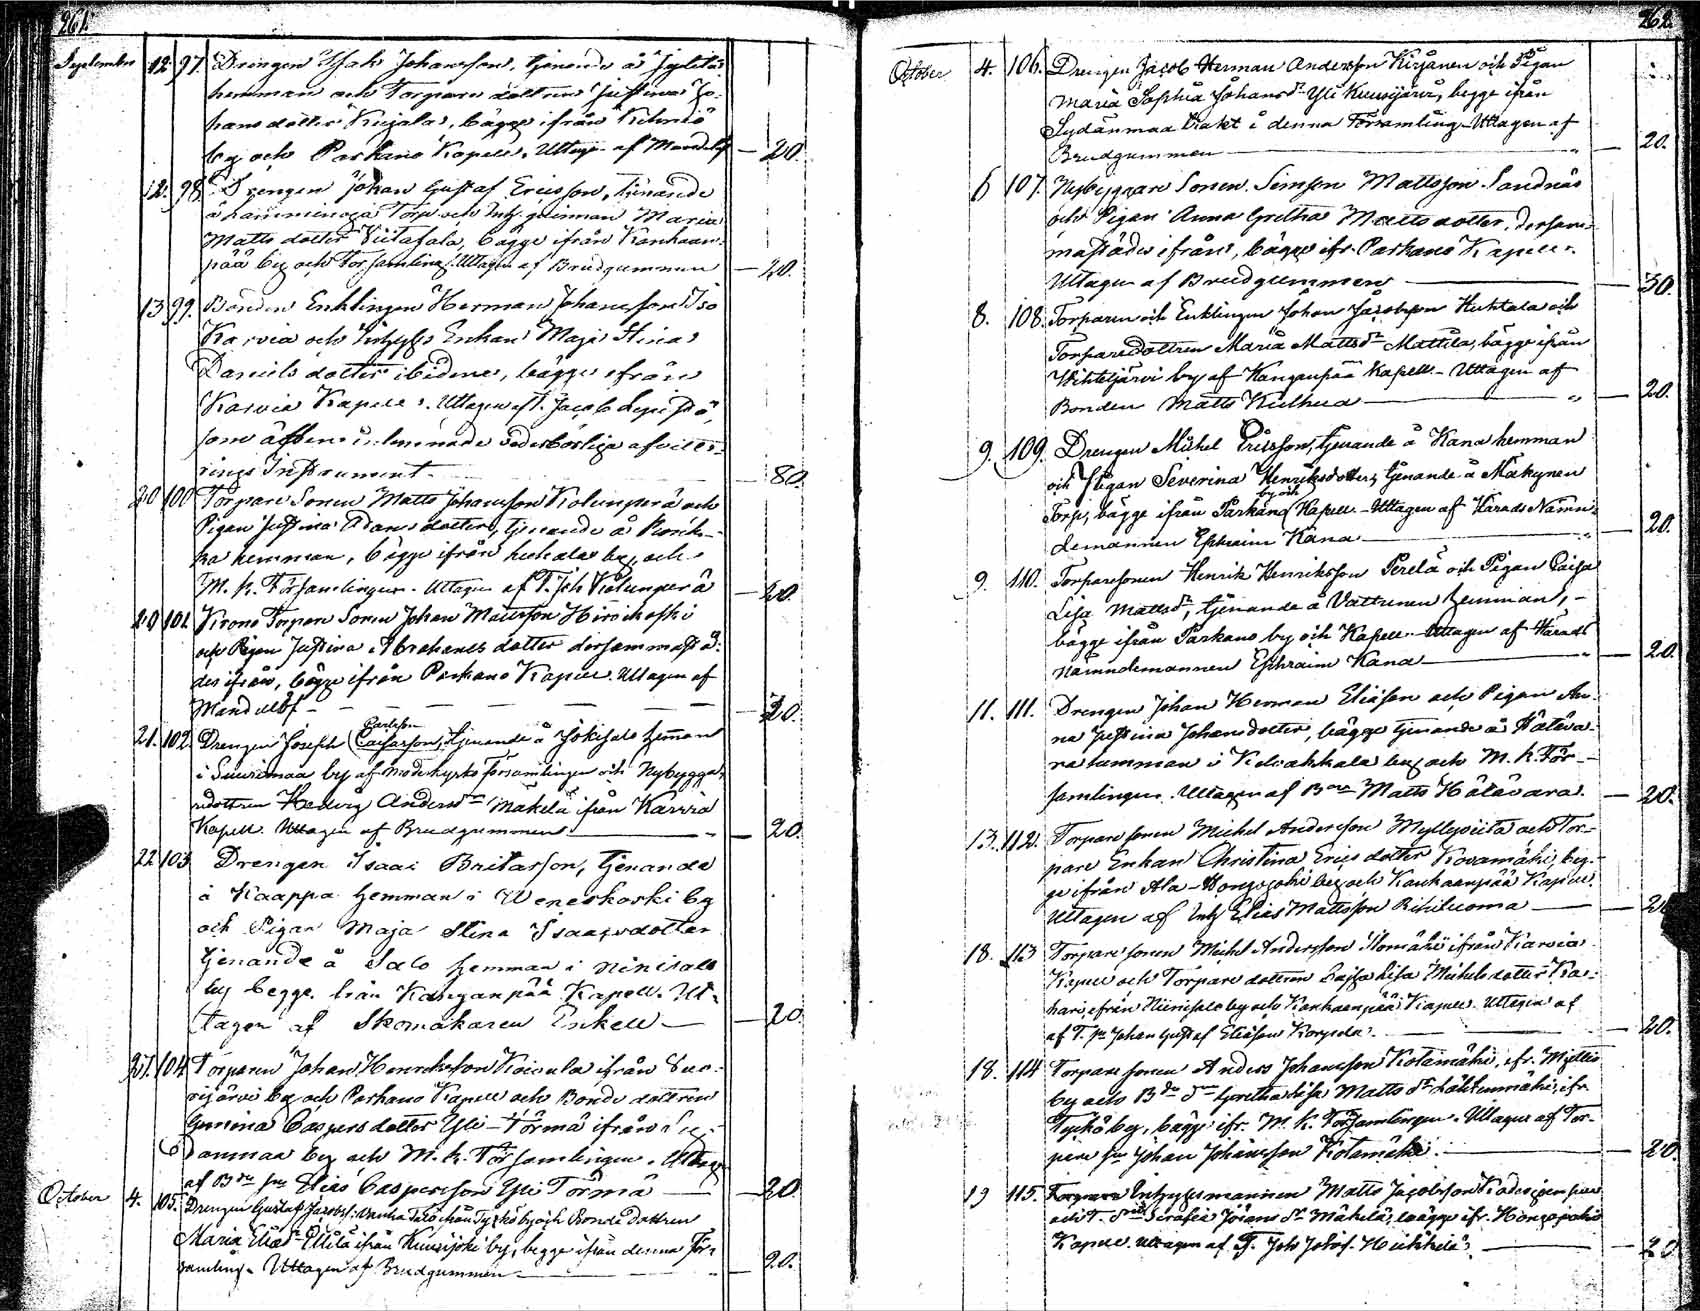 261.
September 12. 97. Drengen Isak Johansson, tjenande å
hemman och Torpare dottren Justina Jo-
hans dotter Kujala, bägge ifrån Kihniö
by och Parkano Kapell. Uttagen af Mandelöf — 20.
12. 98. Drengen Johan Gustaf Ericsson, tjenande
å Torp och Inh. qvinnan Maria
Matts dotter Viitasala, bägge ifrån Kankaan-
pää by och Församling. Uttagen af Brudgummen — 20.
13 99. Bonden Enklingen Herman Johansson Iso
Karvia och Enkan Maja Stina
Daniels dotter ibidem, bägge ifrån
Karvia Kapell. Uttagen af T. Jacob
som äfven inlemnade vederbörliga afvitt-
rings Instrument — 80.
20 100 Torpare Sonen Matts Johansson Kolunperä och
Pigan Justina Adams dotter, tjenande å
ka hemman, bägge ifrån by och
M. K. Församlingen. Uttagen af T. Joh Kolunperä — 20.
20 101 Krono Torpare Sonen Johan Mattsson Hirvikoski
och Pigan Justina Abrahams dotter dersammastä-
des ifrån, bägge ifrån Parkano Kapell. Uttagen af
Mandelöf — 20.
21. 102. Drengen Joseph Carlsson Caisasson, tjenande å Jokisalo hemman
i Suurimaa by af moderkyrko församlingen och Nybygga-
redottren Hedvig Andersdr Mäkelä ifrån Karvia
Kapell. Uttagen af Brudgummen — 20.
22 103 Drengen Isaac Britasson, tjenande
å Kaappa hemman i Weneskoski by
och Pigan Maja Stina Isaacsdotter
tjenande å Salo hemman i Niinisalo
by begge från Kanganpää Kapell. Ut-
tagen af Skomakaren Enkell — 20.
27. 104. Torparen Johan Henriksson Koivula ifrån Vuo-
rijärvi by och Parkano Kapell och Bonde dottren
Gunina Caspers dotter Yli-Törmä ifrån Sy-
dänmaa by och M. K. Församlingen. Uttagen
af Bde sn Elias Caspersson Yli Törmä — 20.
October 4. 105. Drengen Gustaf Jacobs: Vanha Talo ifrån Tyrkö by och Bonde Dottren
Maria Eliædr Ettilä ifrån Kuusijoki by, begge ifrån denna För-
samling. Uttagen af Brudgummen — 20.
262.
October 4. 106. Drengen Jacob Herman Andersson Kirjanen och Pigan
Maria Sophia Johansdr Yli Kuusijärvi, begge ifrån
Sydänmaa Trakt i denna Församling. Uttagen af
Brudgummen — 20.
6 107. Nybyggare Sonen Simson Mattsson Sandnäs
och Pigan Anna Gretha Matts dotter, dersam-
mastädes ifrån, bägge ifr. Parkano Kapell.
Uttagen af Brudgummen — 30.
8. 108. Torparen och Enklingen Johan Jacobsson Huhtala och
Torparedottren Maria Mattsdr Mattila, bägge ifrån
Wihteljärvi by af Kanganpää Kapell. Uttagen af
Bonden Matts Kulhua — 20.
9. 109. Drengen Michel Ericsson, tjenande å Kana hemman
och Pigan Severina Henriksdotter, tjenande å Mäkynen
Torp, bägge ifrån Parkano by och Kapell. Uttagen af Härads Nämn-
demannen Ephraim Kana — 20.
9. 110. Torparesonen Henrik Henriksson Perelä och Pigan Caisa
Lisa Mattsdr, tjenande å Vattunen hemman,
bägge ifrån Parkano by och Kapell. Uttagen af Härads
nämndemannen Ephraim Kana — 20.
11. 111. Drengen Johan Herman Eliæson och Pigan An-
na Justina Johansdotter, bägge tjenande å Hätäva-
ra hemman i Kelvahkala by och M. K. För-
samlingen. Uttagen af Bden Matts Hätävara. — 20.
13. 112. Torpare sonen Michel Andersson Myllyviita och Tor-
pare Enkan Christina Erics dotter Kovamäki, beg-
ge ifrån Ala-Hongojoki by och Kankaanpää Kapell.
Uttagen af Inh Elias Mattsson Riihiluoma — 20
18. 113 Torpare sonen Michel Andersson Ilomäki ifrån Karvia
Kapell och Torpare dottren Caisa Lisa Michels dotter Ka-
hari ifrån Niinisalo by och Kankaanpää Kapell. Uttagen af
af T. sn Johan Gustaf Eliæson Korpela. — 20.
18. 114 Torpare sonen Anders Johansson Kotamäki, ifr. Mjettis
by och Bde dr Gretha Lisa Matts dr Lähteenmäki, ifr.
Tyrkö by, bägge ifr. M. K. Församlingen. Uttagen af Tor-
pare sn Johan Johansson Kotamäki. — 20.
19 115. Inhysesmannen Matts Jacobsson
och T. drn Serafia Johans dr Mäkelä, bägge ifr. Hongojoki
Kapell. Uttagen af T. Joh Johsf. Heikkilä. — 20